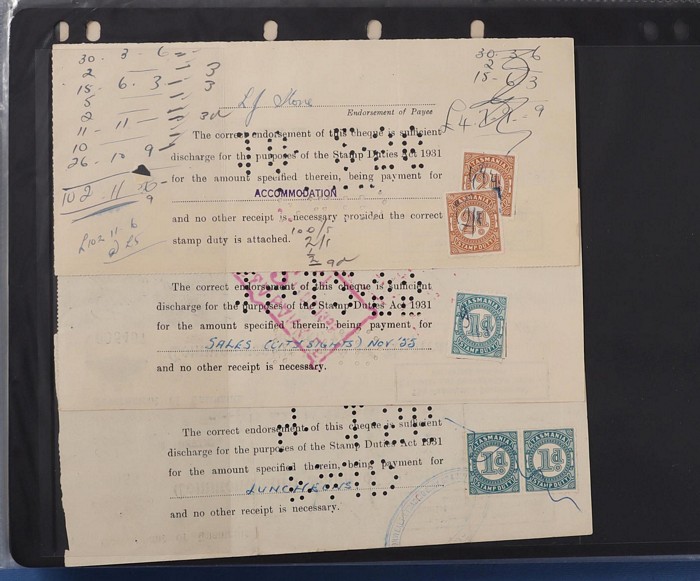 30 - 3 - 6
2
15 - 6 . 3
5
2
11 - 11
10
26 - 10 9
102 . 11
9
£102 11 6
@ £5
3
3
30 - 3 6
2
15 - 6 3
£4
9
Endorsement of Payee
The correct endorsement of this cheque is sufficient
discharge for the purposes of the Stamp Duties Act 1931
for the amount specified therein, being payment for
ACCOMMODATION
and no other receipt is necessary provided the correct
stamp duty is attached.
100/5
2/5
TASMANIA
TASMANIA
STAMP DUTY
The correct endorsement of this cheque is sufficient
discharge for the purposes of the Stamp Duties Act 1931
for the amount specified therein, being payment for
SALES (CITY SIGHTS) NOV '55
and no other receipt is necessary.
TASMANIA
1d
STAMP DUTY
The correct endorsement of this cheque is sufficient
discharge for the purposes of the Stamp Duties Act 1931
for the amount specified therein, being payment for
LUNCHEONS.
and no other receipt is necessary.
TASMANIA
1d
STAMP DUTY
TASMANIA
1d
STAMP DUTY